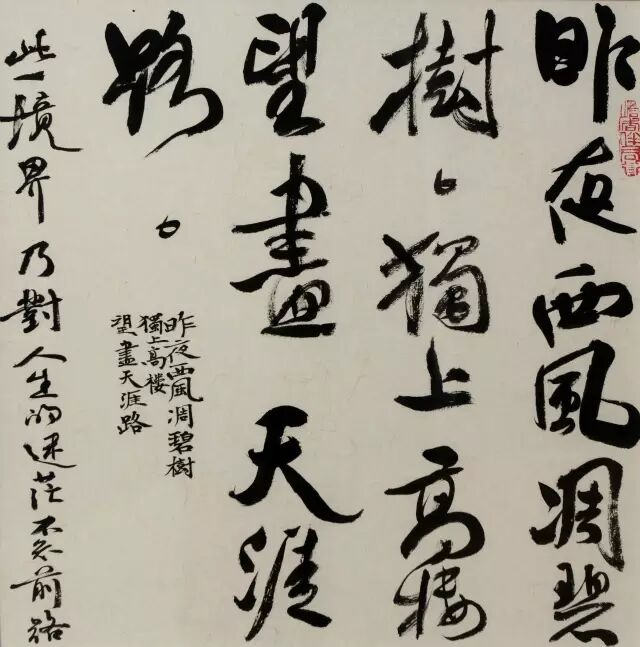 昨夜西風凋碧
樹獨上高樓
望盡天涯
路
昨夜西風凋碧樹
獨上高樓
望盡天涯路
此一境界乃對人生的迷茫不知前路